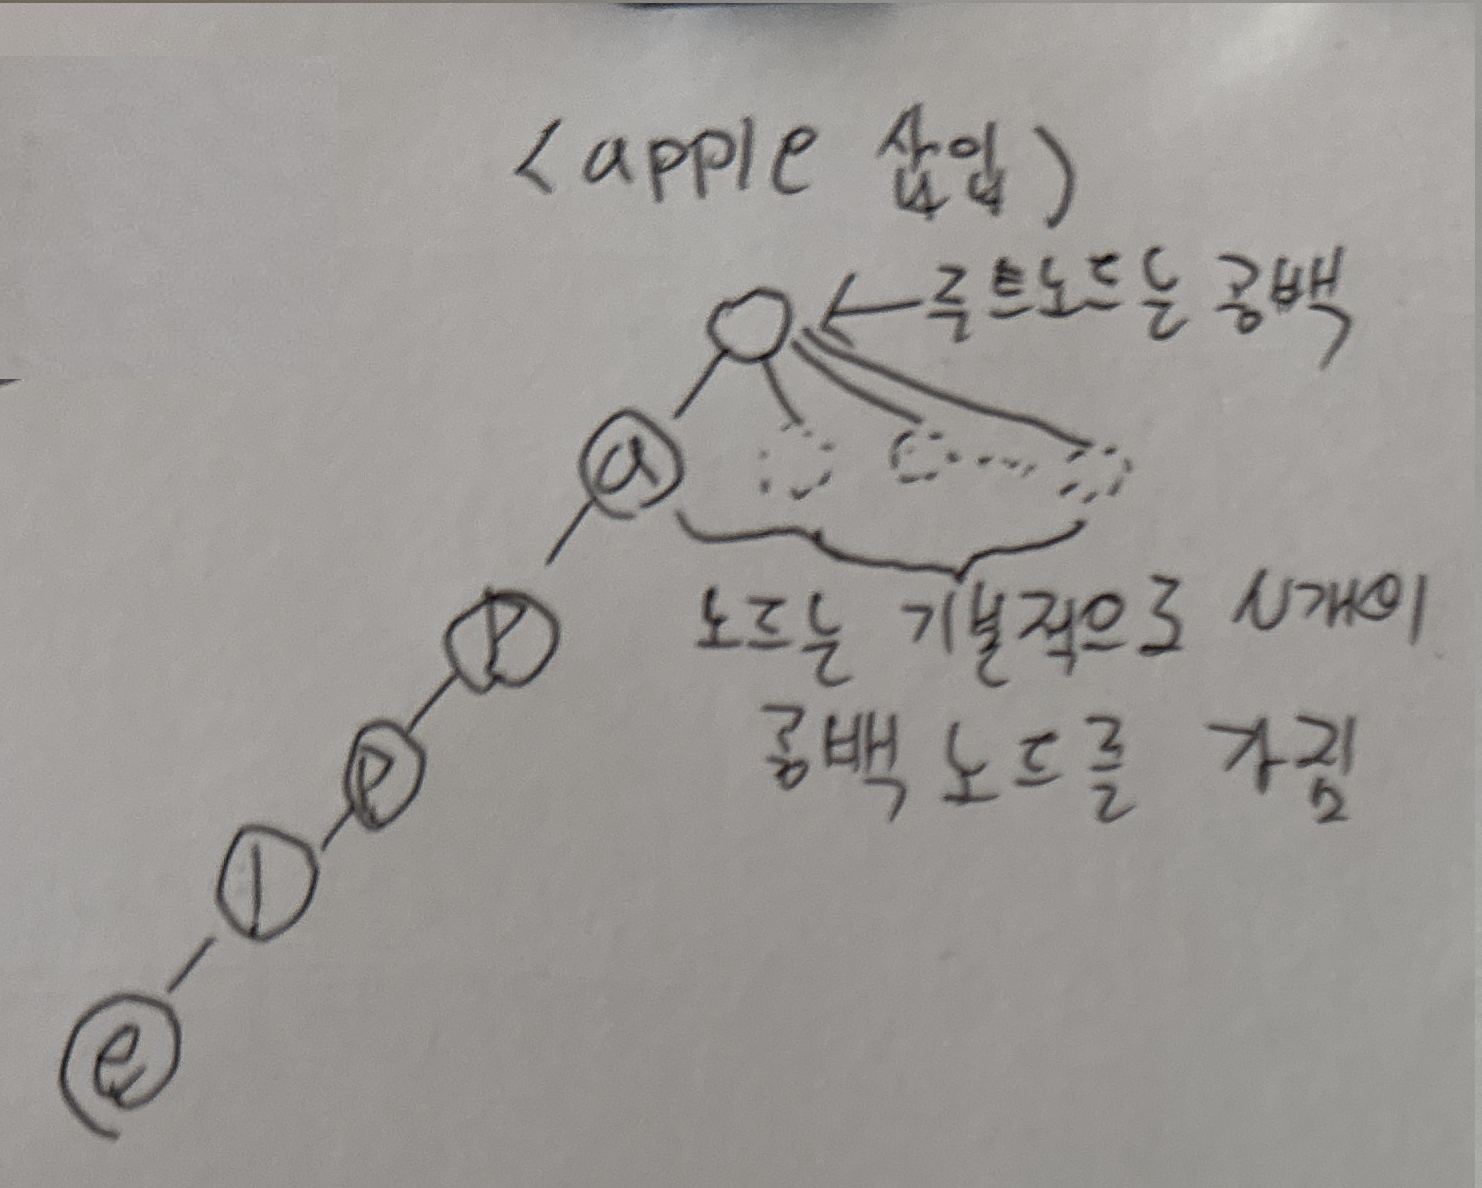 <apple 삽입)
←루트노드는 공백
a
노드는 기본적으로 N개의
P
공백 노드를 가짐
P
l
e